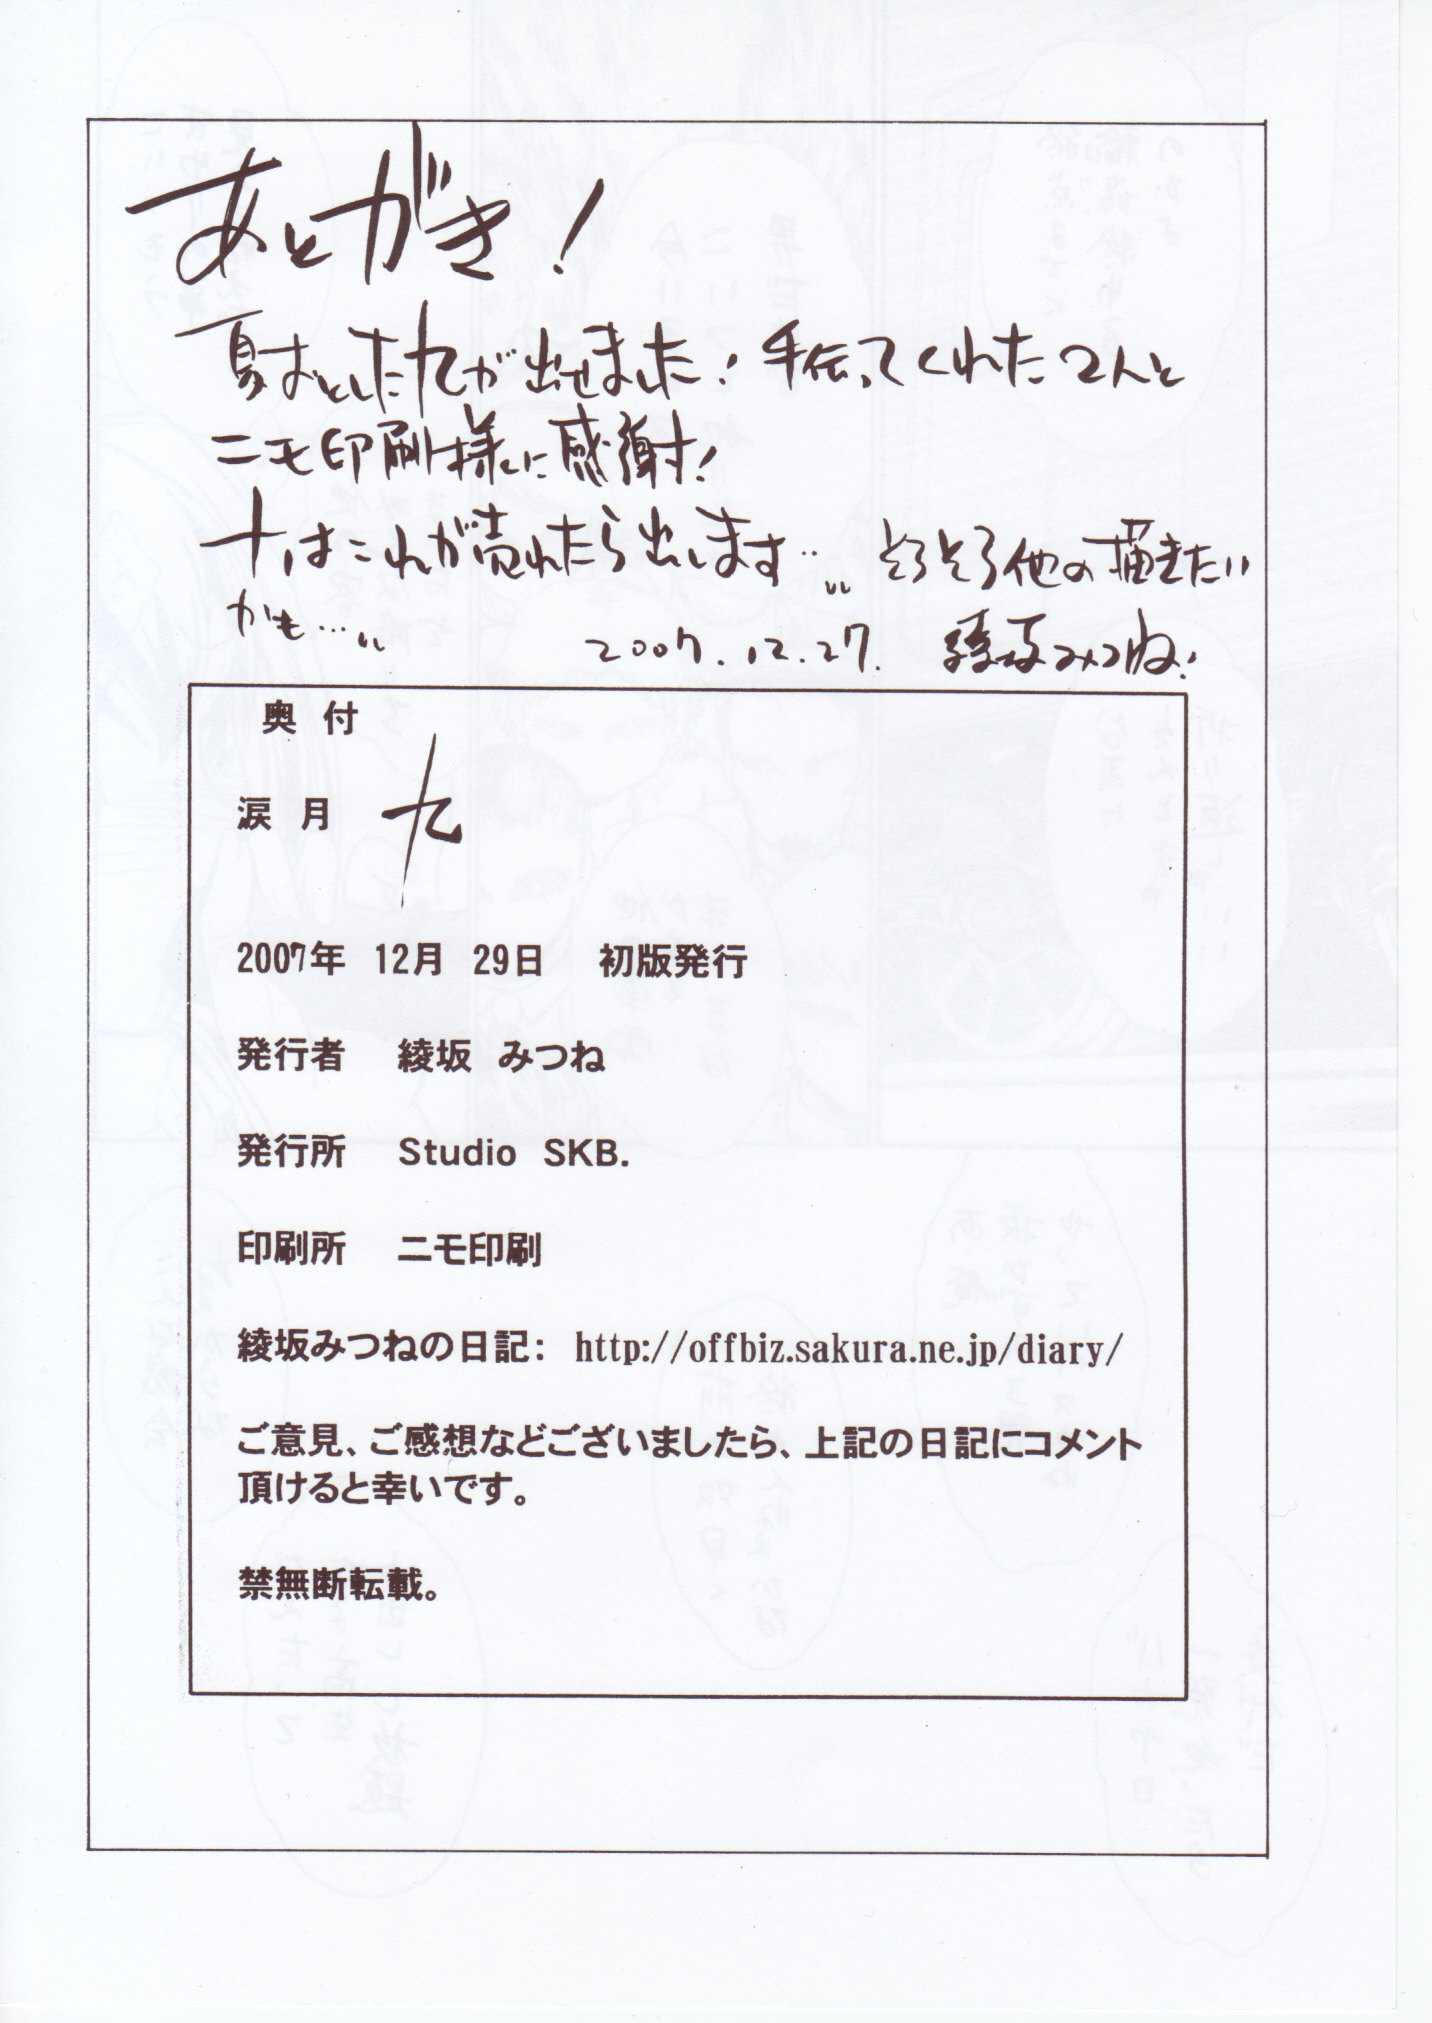 あとがき！
夏おとした九が出せました！手伝ってくれたてんと
ニモ印刷様に感謝！
十はこれが売れたら出します…。そろそろ他の描きたい
かも…。
2007.12.27. 綾坂みつね！
奥付
涙月 九
2007年 12月 29日 初版発行
発行者 綾坂 みつね
発行所 Studio SKB.
印刷所 ニモ印刷
綾坂みつねの日記: http://offbiz.sakura.ne.jp/diary/
ご意見、ご感想などございましたら、上記の日記にコメント
頂けると幸いです。
禁無断転載。